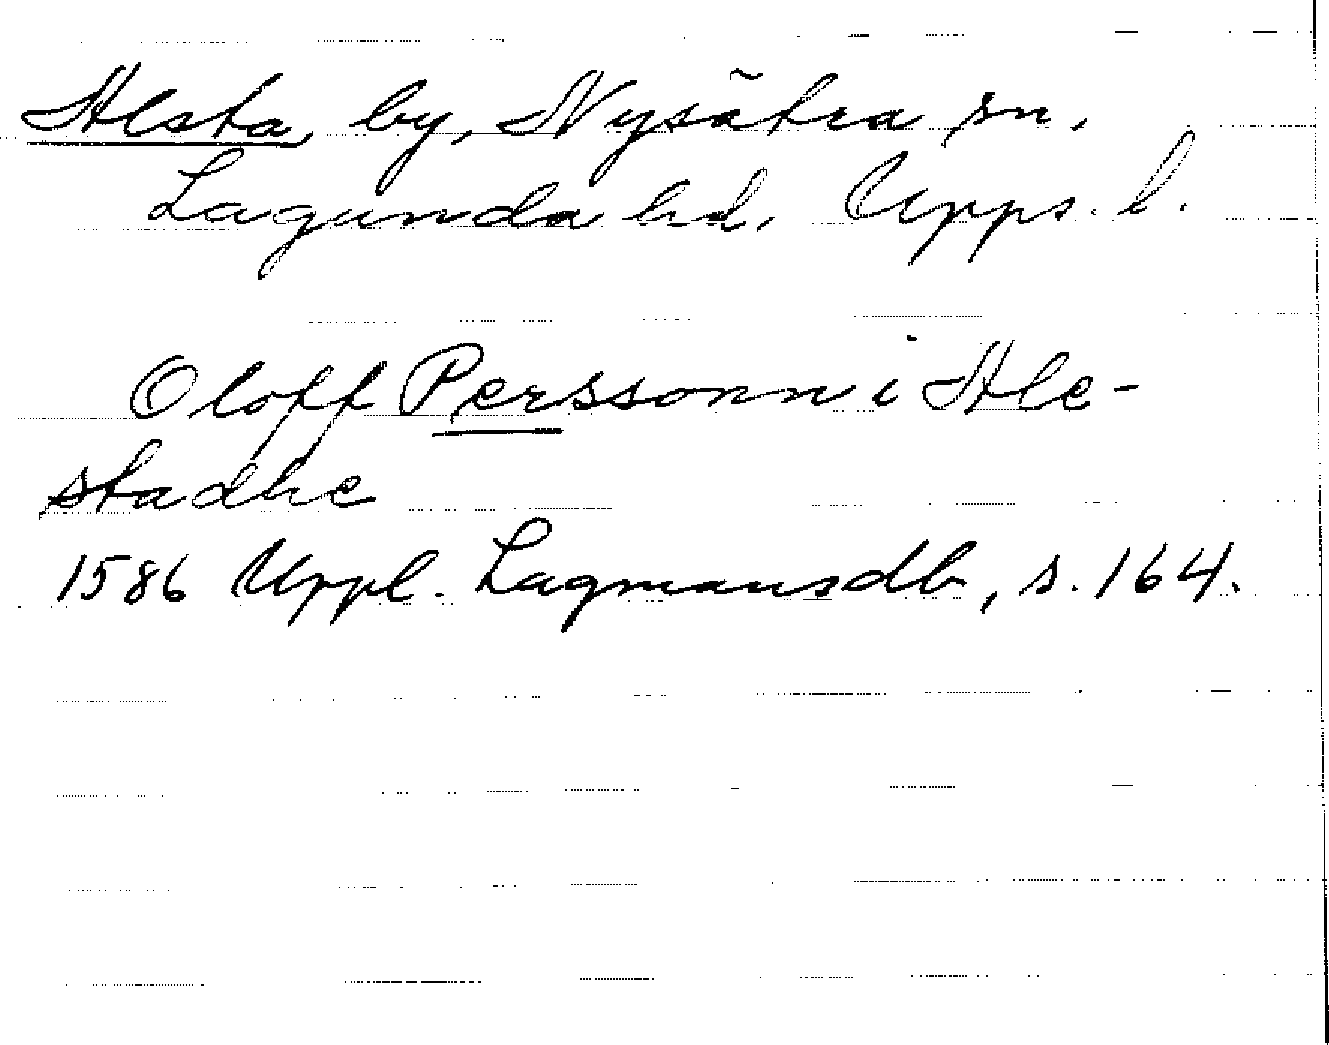 Alsta by, Nysätra sn,
Lagunda hd, Upps. l.
Oloff Perssonn i Ale-
stadhe
1586 Uppl. Lagmansdb, s. 164.